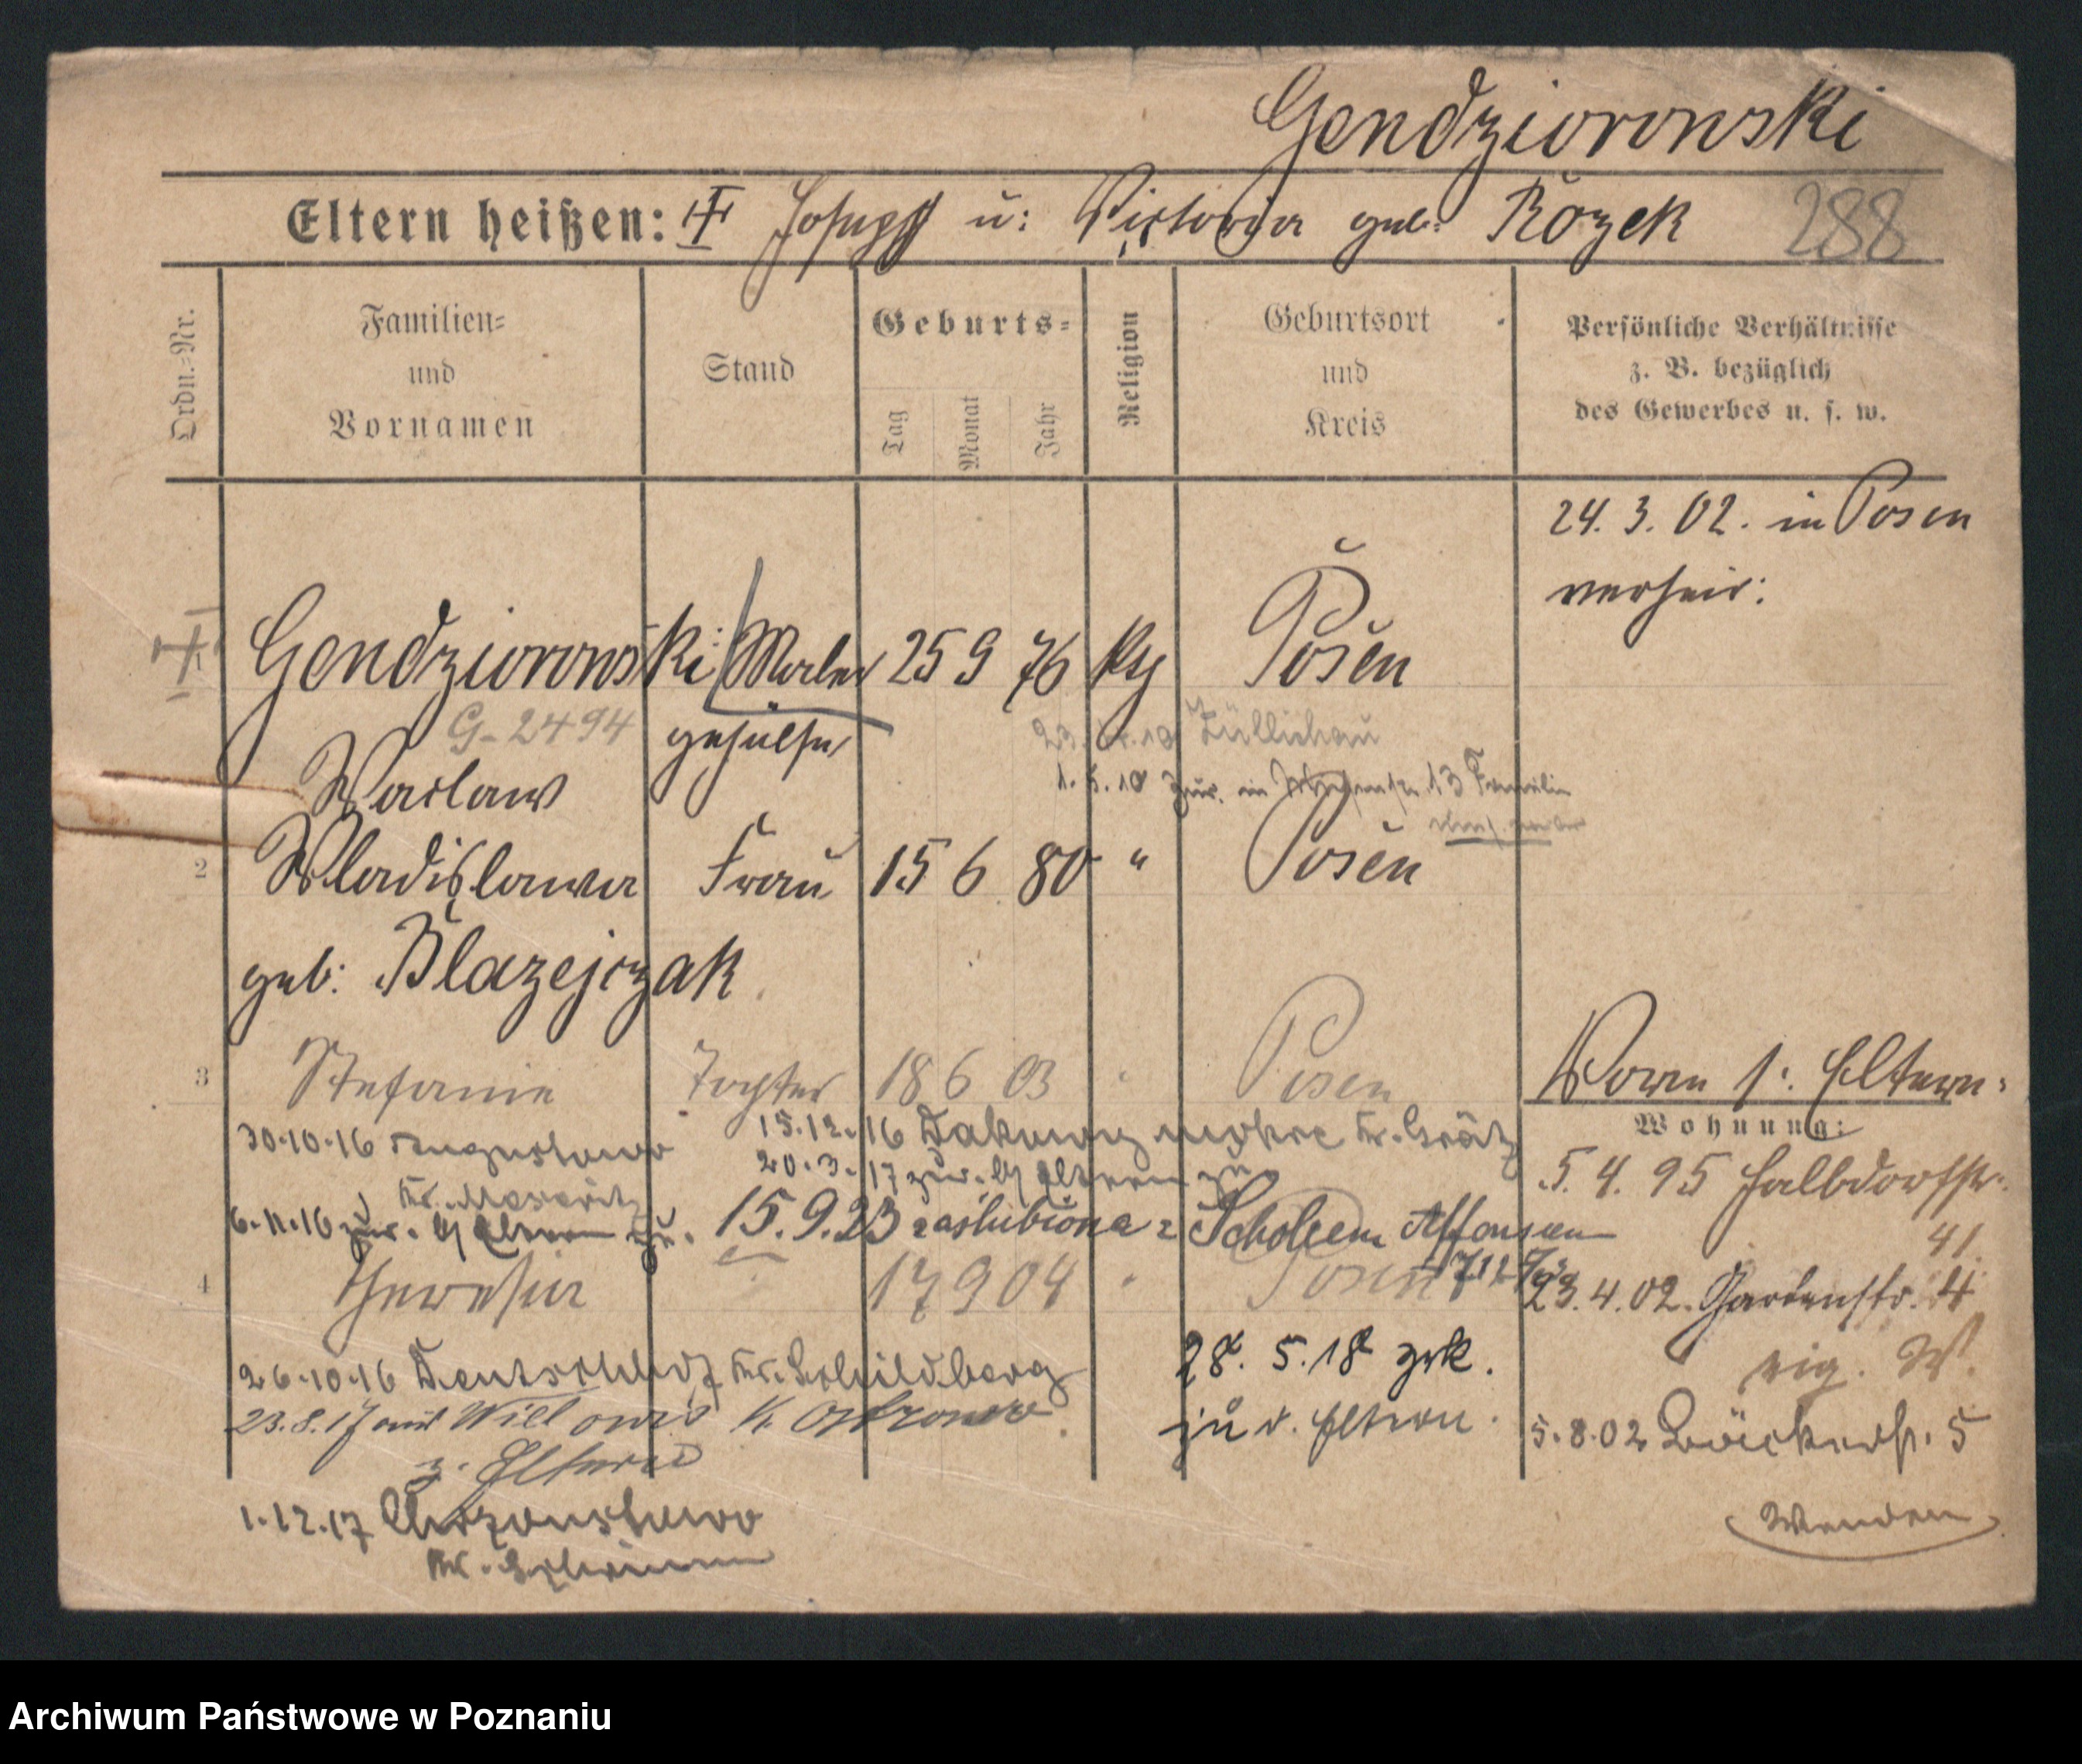 Gendziorowski
Eltern heißen: Joseph u: Victoria geb: Rózek 288
Ordn.-Nr.
Familien-
und
Vornamen
Stand
Geburts-
Tag
Monat
Jahr
Religion
Geburtsort
und
Kreis
Persönliche Verhältnisse
z. B. bezüglich
des Gewerbes u. s. w.
24. 3. 02. in Posen
verheir:
1 Gendziorowski Maler 25 9 76 Posen
G-2494 gehülfe Züllichau
Waclaw 1. 5. 18 zur. 13 Familie
2 Wladislawa Frau 15 6 80 " Posen
geb: Blazejczak
3 Stefanie Tochter 18 6 03 " Posen
Eltern:
Wohnung:
30.10.16 Augustowo 15.12.16 Kr. Grätz
20.3.17 zur. Eltern zu
Kr. Meseritz
6.11.16 zur. Eltern zu. 15.9.23 zaslubiona z
5. 4. 95 Halbdorfstr.
41.
4 Theresia 17 9 04 " Posen
23.4.02. Gartenstr. 4
eig. W.
26.10.16 Kr. Schildberg
28. 5. 18 zrk.
23.8.17 aus K. Ostrowo
zu d. Eltern.
z. Eltern
5.8.02 Bäckerstr. 5
1.12.17
Kr. Schrimm
Wenden
Archiwum Państwowe w Poznaniu